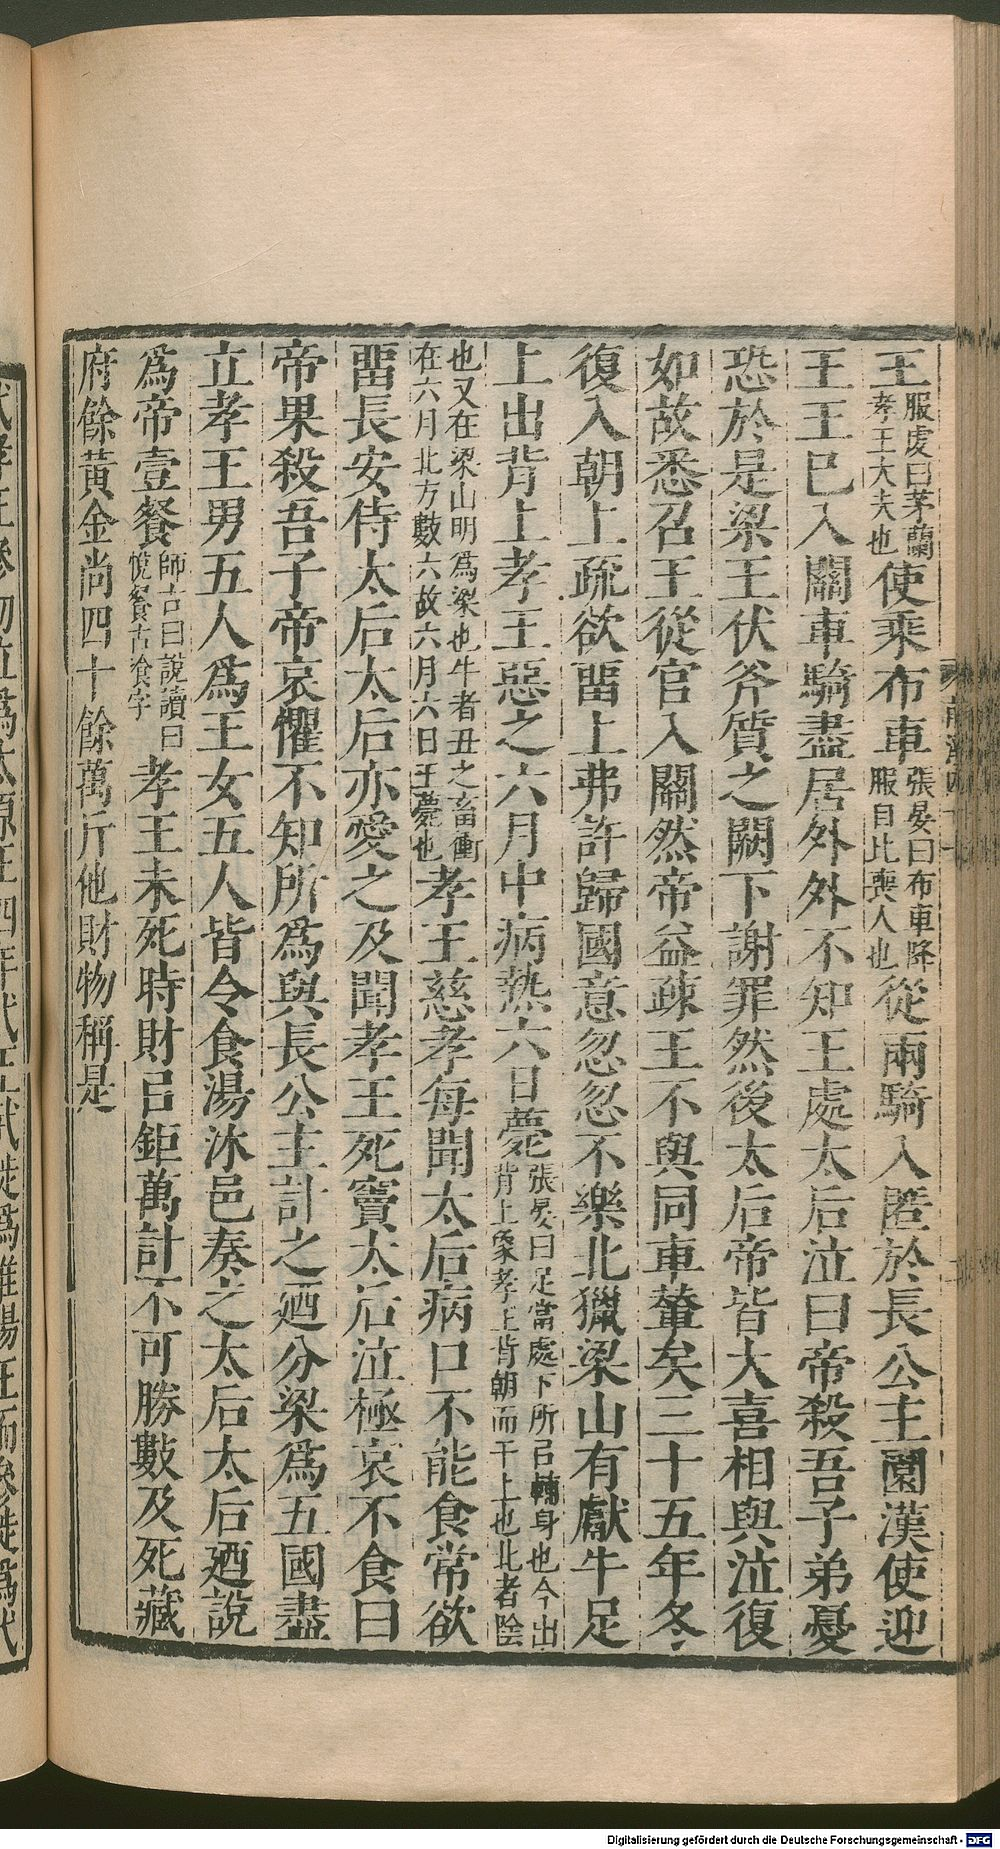 王服虔曰茅蘭孝王大夫也使乘布車張晏曰布車降服自比喪人也從兩騎入匿於長公主園漢使迎
王王已入關車騎盡居外外不知王處太后泣曰帝殺吾子弟憂
恐於是梁王伏斧質之闕下謝罪然後太后帝皆大喜相與泣復
如故悉召王從官入關然帝益疎王不與同車輦矣三十五年冬
復入朝上疏欲畱上弗許歸國意忽忽不樂北獵梁山有獻牛足
上出背上孝王惡之六月中病熱六日薨張晏曰足當處下所㠯輔身也今出背上象孝王背朝而干上也北者陰
也又在梁山明爲梁也牛者丑之畜衝在六月北方數六故六月六日王薨也孝王慈孝每聞太后病口不能食常欲
畱長安侍太后太后亦愛之及聞孝王死竇太后泣極哀不食曰
帝果殺吾子帝哀懼不知所爲與長公主計之廼分梁爲五國盡
立孝王男五人爲王女五人皆令食湯沐邑奏之太后太后廼說
爲帝壹餐師古曰說讀曰悅餐古飡字孝王未死時財㠯鉅萬計不可勝數及死藏
府餘黃金尚四十餘萬斤他財物稱是
Digitalisierung gefördert durch die Deutsche Forschungsgemeinschaft - DFG